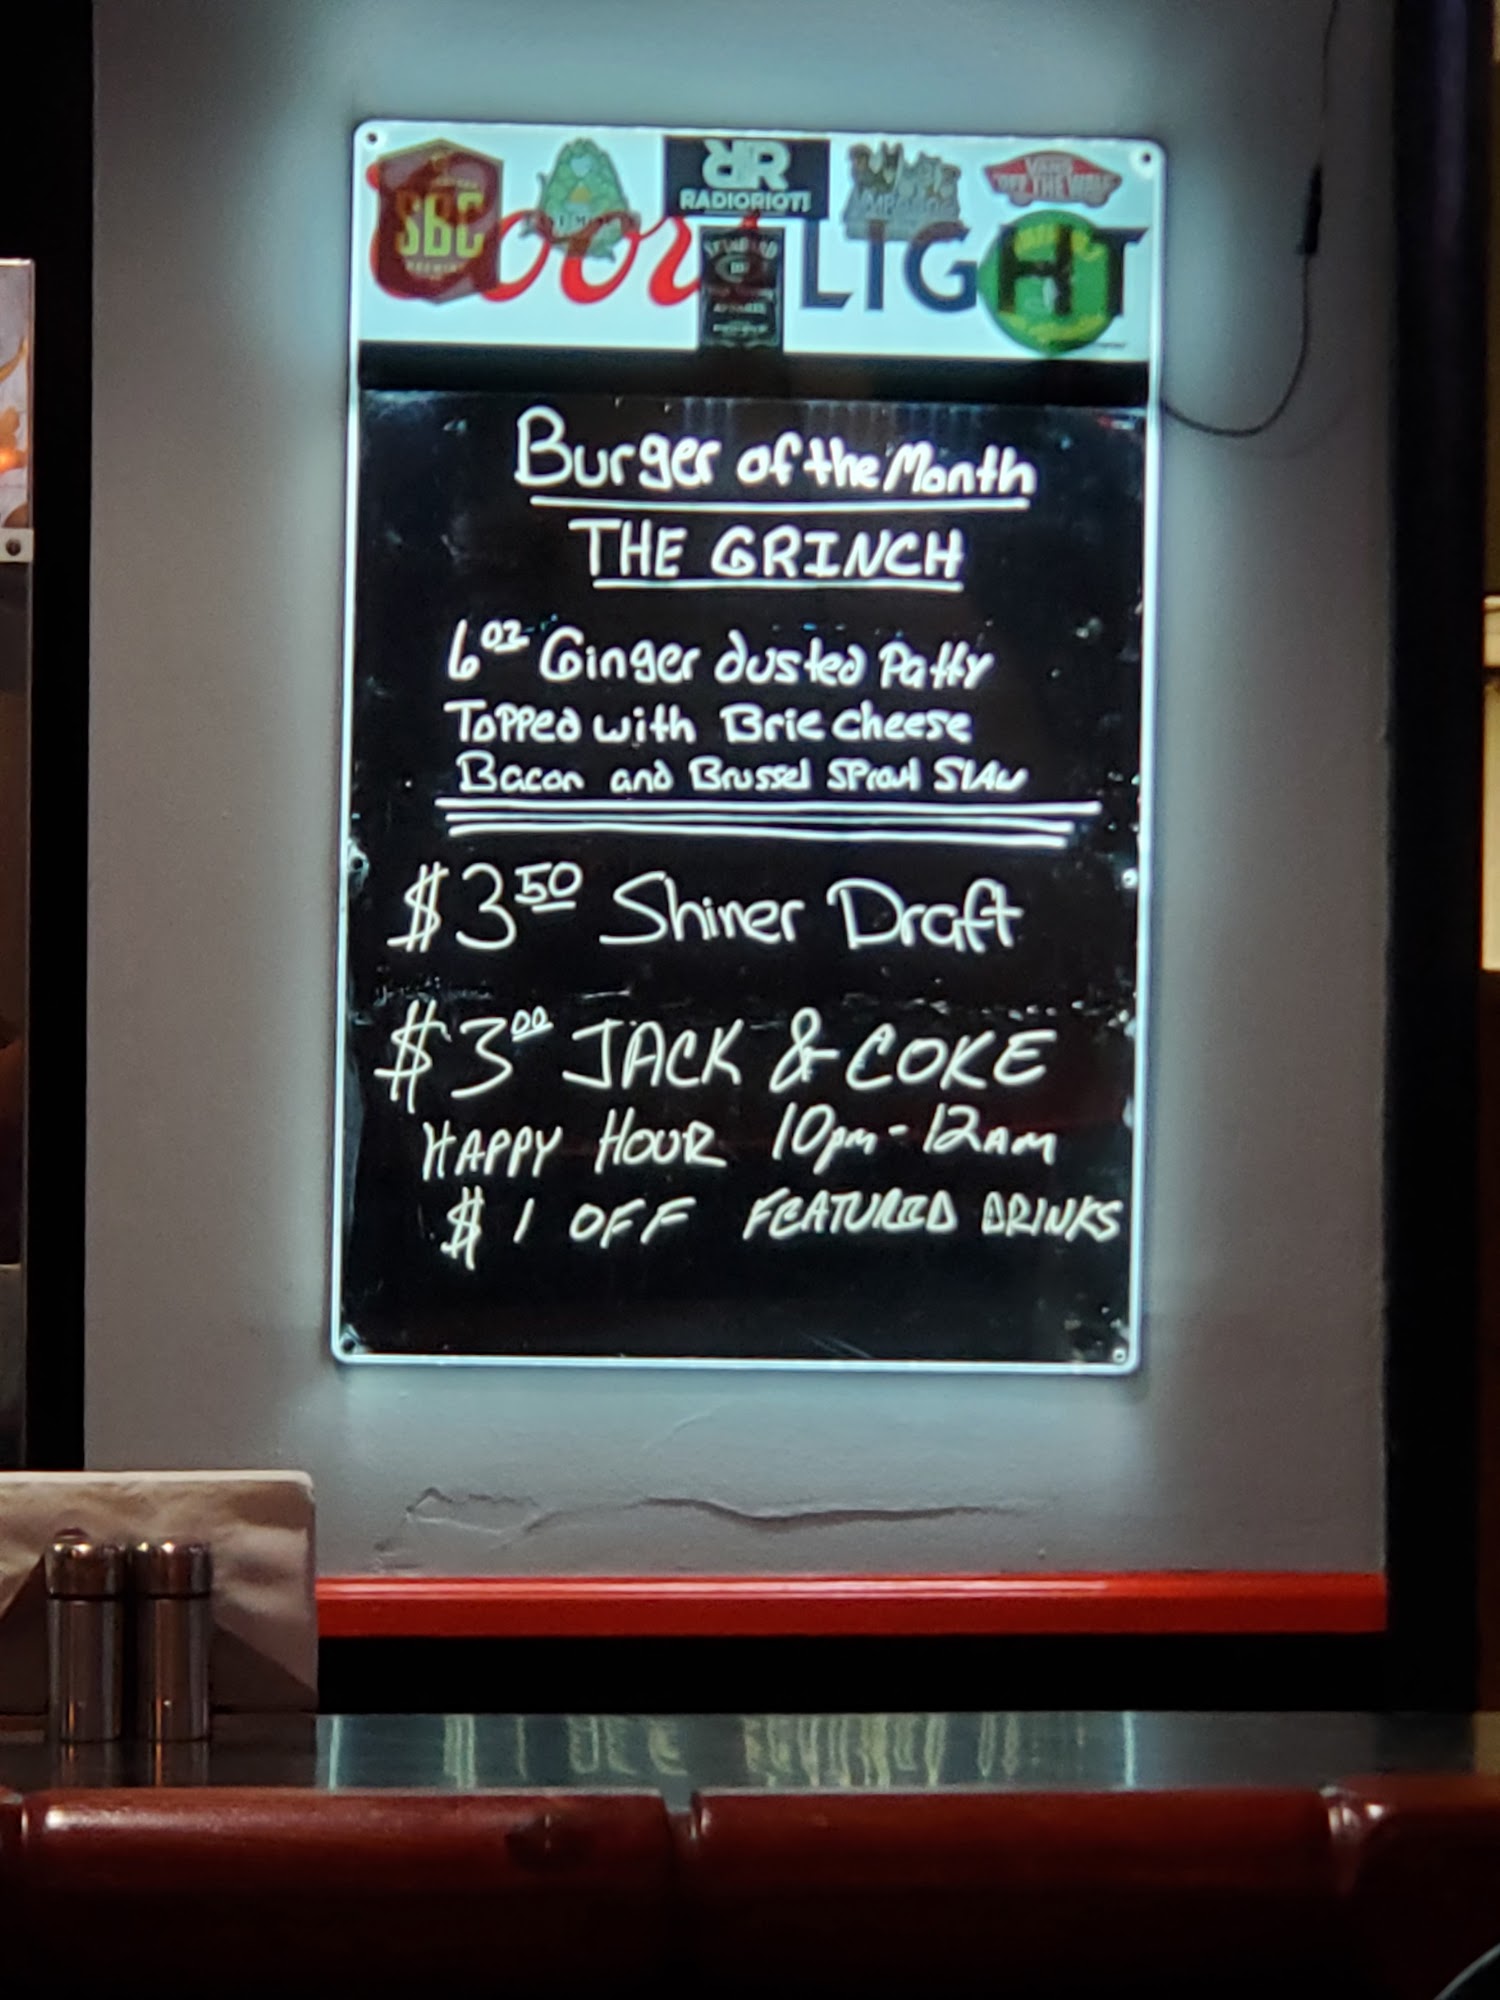 SBC
RADIORIOT!
VANS
"OFF THE WALL"
Coors LIGHT
STANDARD
Burger of the Month
THE GRINCH
6oz Ginger dusted Patty
Topped with Brie cheese
Bacon and Brussel Sprout Slaw
$3.50 Shiner Draft
$3.00 JACK & COKE
HAPPY HOUR 10pm-12AM
$1 OFF FEATURED DRINKS